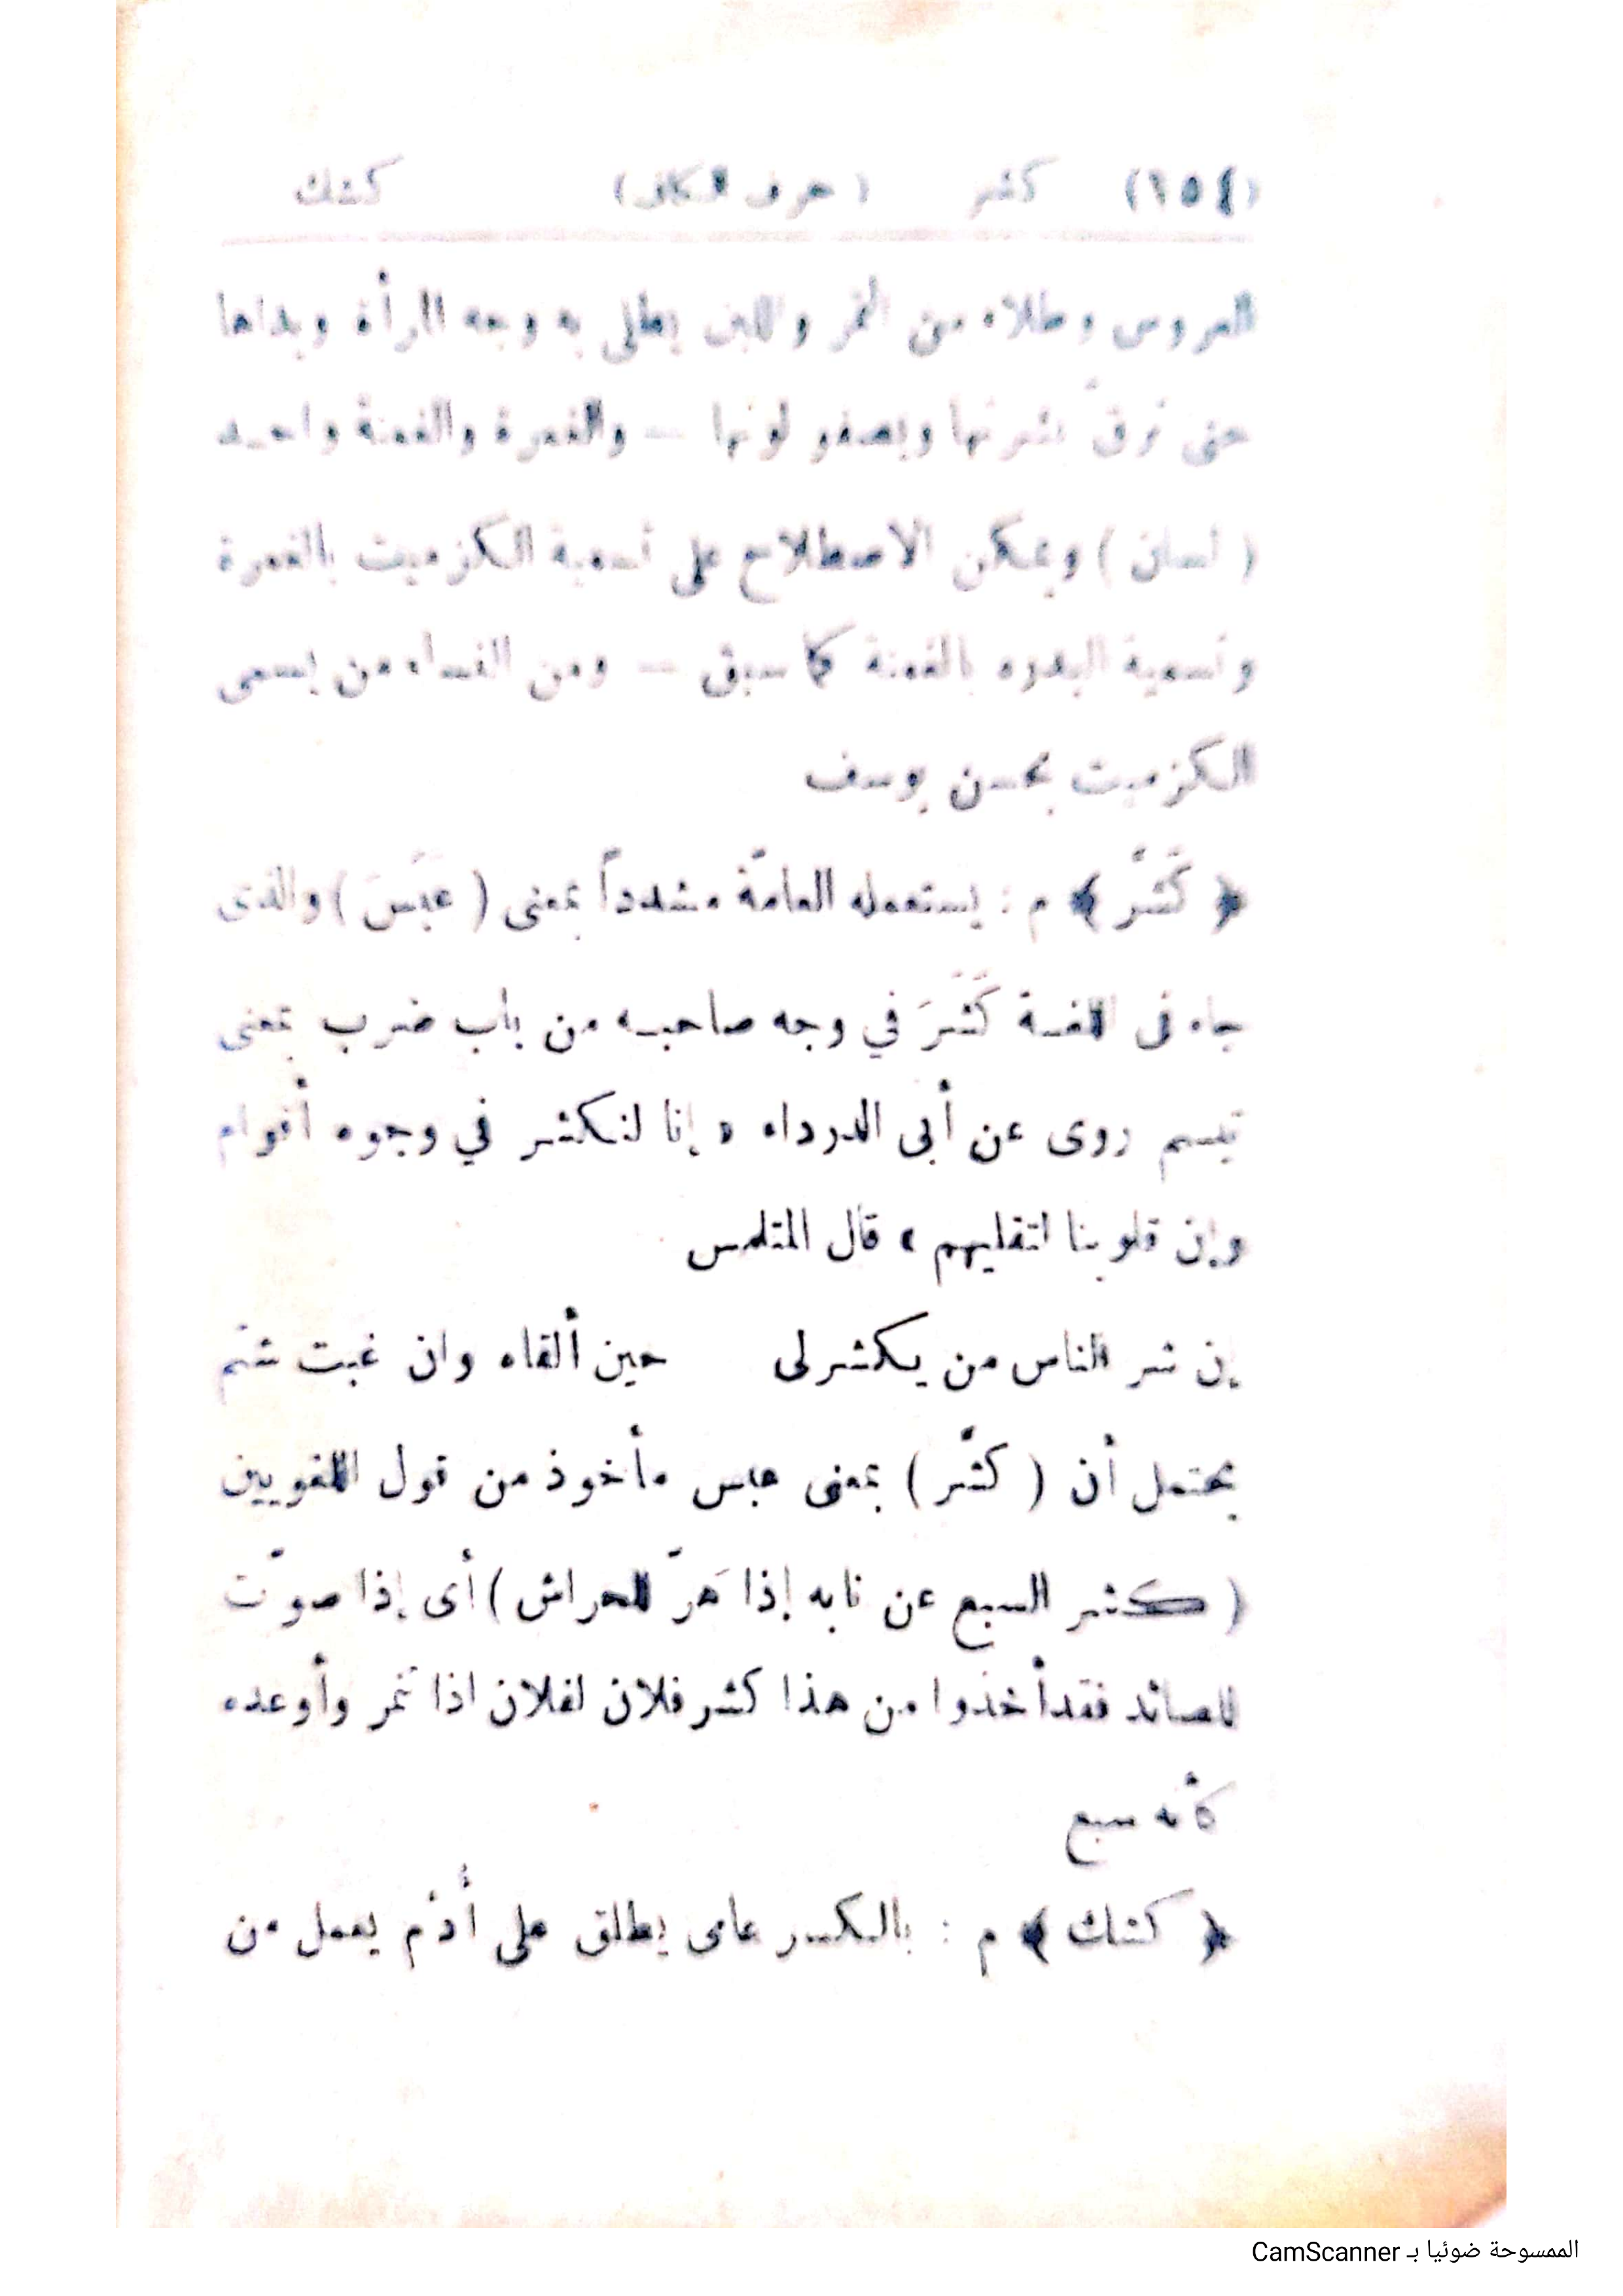 (٤٥٦) كشر ( حرف الكاف ) كشك
العروس وطلاء من التمر واللبن يطلى به وجه المرأة ويداها
حتى ترقّ بشرتها ويصفو لونها — والغمرة والغمنة واحد
( لسان ) ويمكن الاصطلاح على تسمية الكزميت بالغمرة
وتسمية البدره بالغمنة كما سبق — ومن النساء من يسمى
الكزميت بحسن يوسف
﴿ كَشَّر ﴾ م : يستعمله العامّة مشدداً بمعنى ( عبَسَ ) والذى
جاء فى اللغة كَشَرَ في وجه صاحبه من باب ضرب بمعنى
تبسم روى عن أبى الدرداء « إنا لنكشر في وجوه أقوام
وإن قلوبنا لتقليهم » قال المتلمس
إن شر الناس من يكشر لى حين ألقاه وان غبت شتم
يحتمل أن ( كشّر ) بمعنى عبس مأخوذ من قول اللغويين
( كشر السبع عن نابه إذا هَرّ للحراش ) أى إذا صوّت
للصائد فقد أخذوا من هذا كشر فلان لفلان اذا تنمر وأوعده
كأنه سبع
﴿ كشك ﴾ م : بالكسر عامى يطلق على أُدْم يعمل من
الممسوحة ضوئيا بـ CamScanner